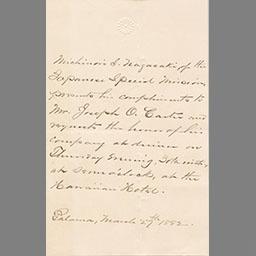 Michinori S. Nagasaki of the
Japanese Special Mission,
presents his compliments to
Mr. Joseph O. Carter and
requests the honor of his
company at dinner on
Thursday Evening, 30th inst.,
at Seven o'clock, at the
Hawaiian Hotel.
Palama, March 27th 1882.